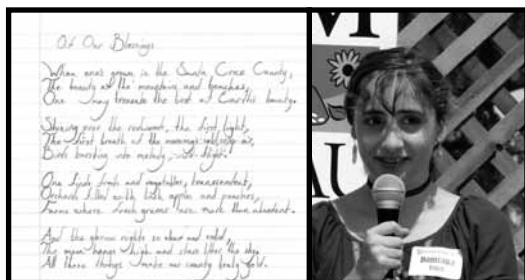 Of Our Blessings
When one's grown in the Santa Cruz County,
The beauty of the mountains and beaches,
One may the best of Earth's bounty.
Shining over the redwoods, the first light,
The first breath of the morning's air,
Birds bursting into melody, flight.
One finds fruits and vegetables, transcendent,
Orchards filled with lush apples and peaches,
Farms where fresh greens are more than abundant.
And the glorious nights so clear and cold,
The moon hangs high and stars litter the sky
All these things make our county truly gold.
M
AU